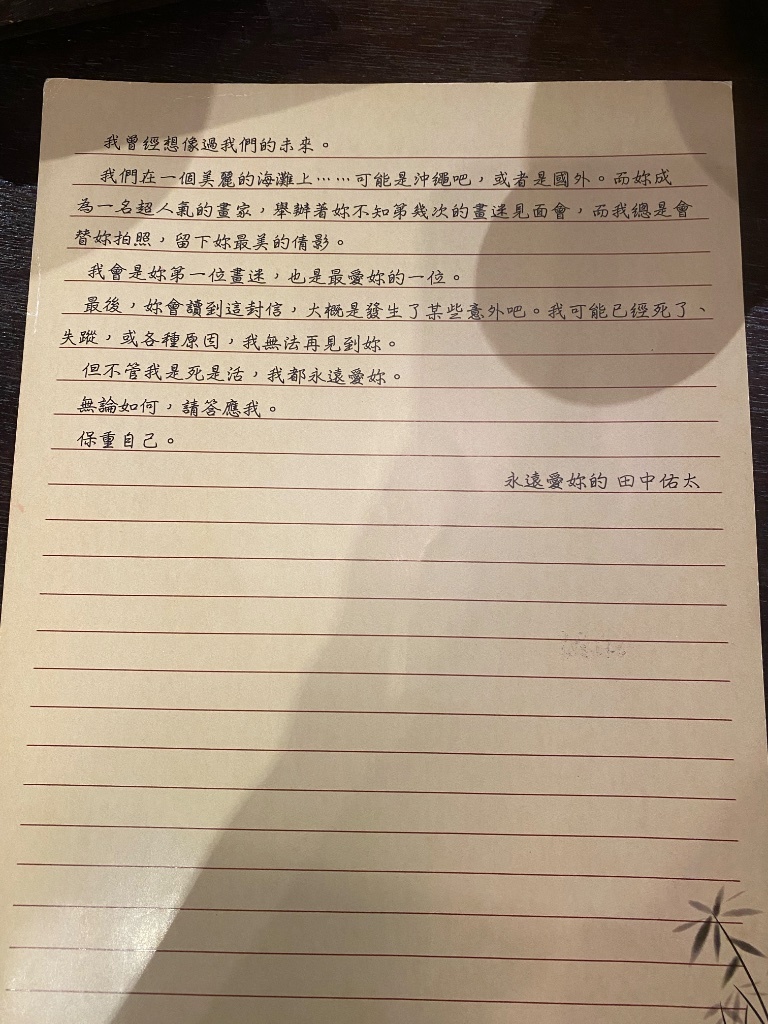 我曾經想像過我們的未來。
我們在一個美麗的海灘上……可能是沖繩吧，或者是國外。而妳成
為一名超人氣的畫家，舉辦著妳不知第幾次的畫迷見面會，而我總是會
替妳拍照，留下妳最美的倩影。
我會是妳第一位畫迷，也是最愛妳的一位。
最後，妳會讀到這封信，大概是發生了某些意外吧。我可能已經死了、
失蹤，或各種原因，我無法再見到妳。
但不管我是死是活，我都永遠愛妳。
無論如何，請答應我。
保重自己。
永遠愛妳的 田中佑太